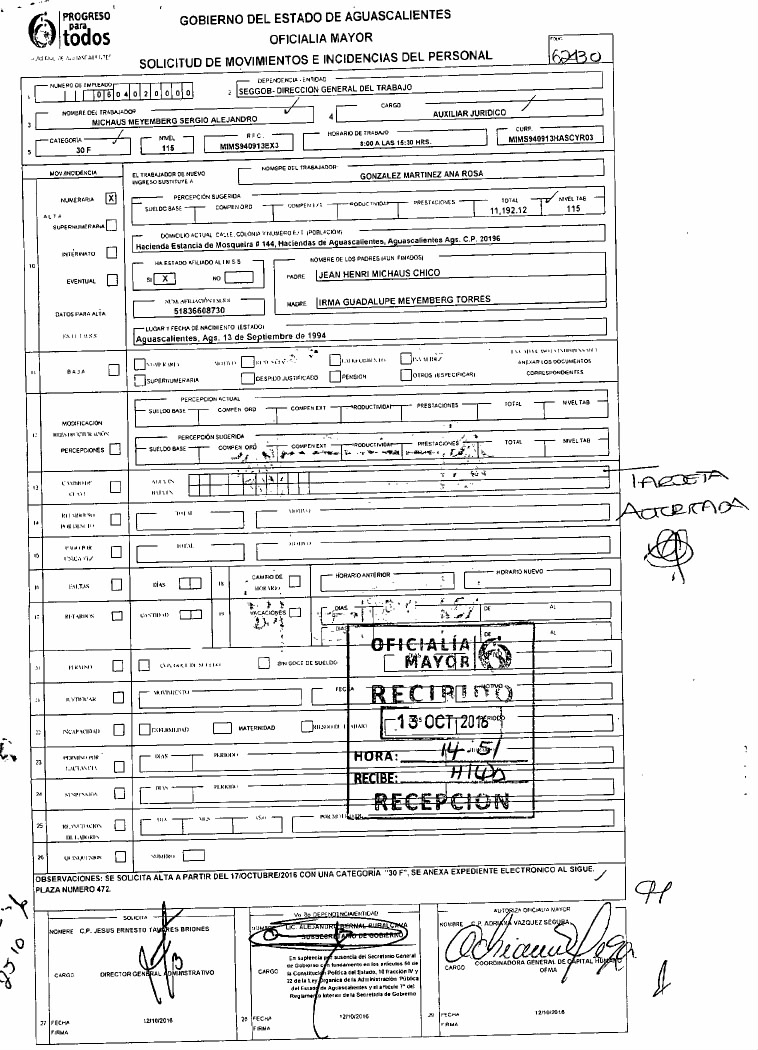 PROGRESO
para
todos
GOBIERNO DEL ESTADO DE AGUASCALIENTES
OFICIALIA MAYOR
SOLICITUD DE MOVIMIENTOS E INCIDENCIAS DEL PERSONAL
FOLIO
62430
1 NUMERO DE EMPLEADO
0604020000
2 DEPENDENCIA - ENTIDAD
SEGGOB- DIRECCIÓN GENERAL DEL TRABAJO
3 NOMBRE DEL TRABAJADOR
MICHAUS MEYEMBERG SERGIO ALEJANDRO
4 CARGO
AUXILIAR JURIDICO
5 CATEGORIA
30 F
NIVEL
115
R.F.C.
MIMS940913EX3
HORARIO DE TRABAJO
8:00 A LAS 15:30 HRS.
CURP.
MIMS940913HASCYR03
MOV/INCIDENCIA
EL TRABAJADOR DE NUEVO
INGRESO SUSTITUYE A
NOMBRE DEL TRABAJADOR
GONZALEZ MARTINEZ ANA ROSA
NUMERARIA X
PERCEPCIÓN SUGERIDA
SUELDO BASE COMPEN ORD COMPEN EXT PRODUCTIVIDAD PRESTACIONES TOTAL NIVEL TAB
11,192.12 115
ALTA
SUPERNUMERARIA
DOMICILIO ACTUAL CALLE, COLONIA Y NUMERO EXT. (POBLACIÓN)
Hacienda Estancia de Mosqueira # 144, Haciendas de Aguascalientes, Aguascalientes Ags. C.P. 20196
10
INTERINATO
HA ESTADO AFILIADO AL I M S S
SI X NO
NOMBRE DE LOS PADRES (AUN FINADOS)
PADRE JEAN HENRI MICHAUS CHICO
EVENTUAL
NUM. AFILIACIÓN I M S S
51836608730
MADRE IRMA GUADALUPE MEYEMBERG TORRES
DATOS PARA ALTA
EN EL I M S S
LUGAR Y FECHA DE NACIMIENTO (ESTADO)
Aguascalientes, Ags. 13 de Septiembre de 1994
11 BAJA
NUMERARIA MOTIVO RENUNCIA FALLECIMIENTO INVALIDEZ
ANEXAR LOS DOCUMENTOS
CORRESPONDIENTES
SUPERNUMERARIA DESPIDO JUSTIFICADO PENSION OTROS (ESPECIFICAR)
12 MODIFICACION
PERCEPCIONES
PERCEPCION ACTUAL
SUELDO BASE COMPEN ORD COMPEN EXT PRODUCTIVIDAD PRESTACIONES TOTAL NIVEL TAB
PERCEPCIÓN SUGERIDA
SUELDO BASE COMPEN ORD COMPEN EXT PRODUCTIVIDAD PRESTACIONES TOTAL NIVEL TAB
13 CAMBIO DE
CLAVE
TARJETA
AUTORIZADA
14 RETABULADO
TOTAL MOTIVO
15 PAGO POR
UNICA VEZ
TOTAL MOTIVO
16 FALTAS DÍAS
18 CAMBIO DE
HORARIO
HORARIO ANTERIOR HORARIO NUEVO
17 RETARDOS CANTIDAD
19 VACACIONES
DIAS DE AL
DIAS DE AL
PERMISO CON GOCE DE SUELDO SIN GOCE DE SUELDO
JUSTIFICAR MOVIMIENTO FECHA MOTIVO
22 INCAPACIDAD ENFERMEDAD MATERNIDAD RIESGO DE TRABAJO PERIODO
23 PERMISO POR
LACTANCIA
DIAS PERIODO
24 SUSPENSION DIAS PERIODO
25 REANUDACION
DE LABORES
DIA MES AÑO
26 QUINQUENIOS NUMERO
OFICIALÍA
MAYOR
RECIBIDO
13 OCT 2016
HORA: 14:51
RECIBE:
RECEPCIÓN
OBSERVACIONES: SE SOLICITA ALTA A PARTIR DEL 17/OCTUBRE/2016 CON UNA CATEGORIA "30 F", SE ANEXA EXPEDIENTE ELECTRONICO AL SIGUE.
PLAZA NUMERO 472.
SOLICITA
NOMBRE C.P. JESUS ERNESTO TAVARES BRIONES
CARGO DIRECTOR GENERAL ADMINISTRATIVO
27 FECHA 12/10/2016
FIRMA
Vo Bo DEPENDENCIA/ENTIDAD
NOMBRE LIC. ALEJANDRO BERNAL RUBALCAVA
SUBSECRETARIO DE GOBIERNO
CARGO
En suplencia por ausencia del Secretario General
de Gobierno con fundamento en los artículos 50 de
la Constitución Política del Estado, 10 fracción IV y
22 de la Ley Orgánica de la Administración Pública
del Estado de Aguascalientes y el artículo 7° del
Reglamento Interior de la Secretaría de Gobierno
28 FECHA 12/10/2016
FIRMA
AUTORIZA OFICIALIA MAYOR
NOMBRE C.P. ADRIANA VAZQUEZ SEGURA
CARGO COORDINADORA GENERAL DE CAPITAL HUMANO
OFMA
29 FECHA 12/10/2016
FIRMA